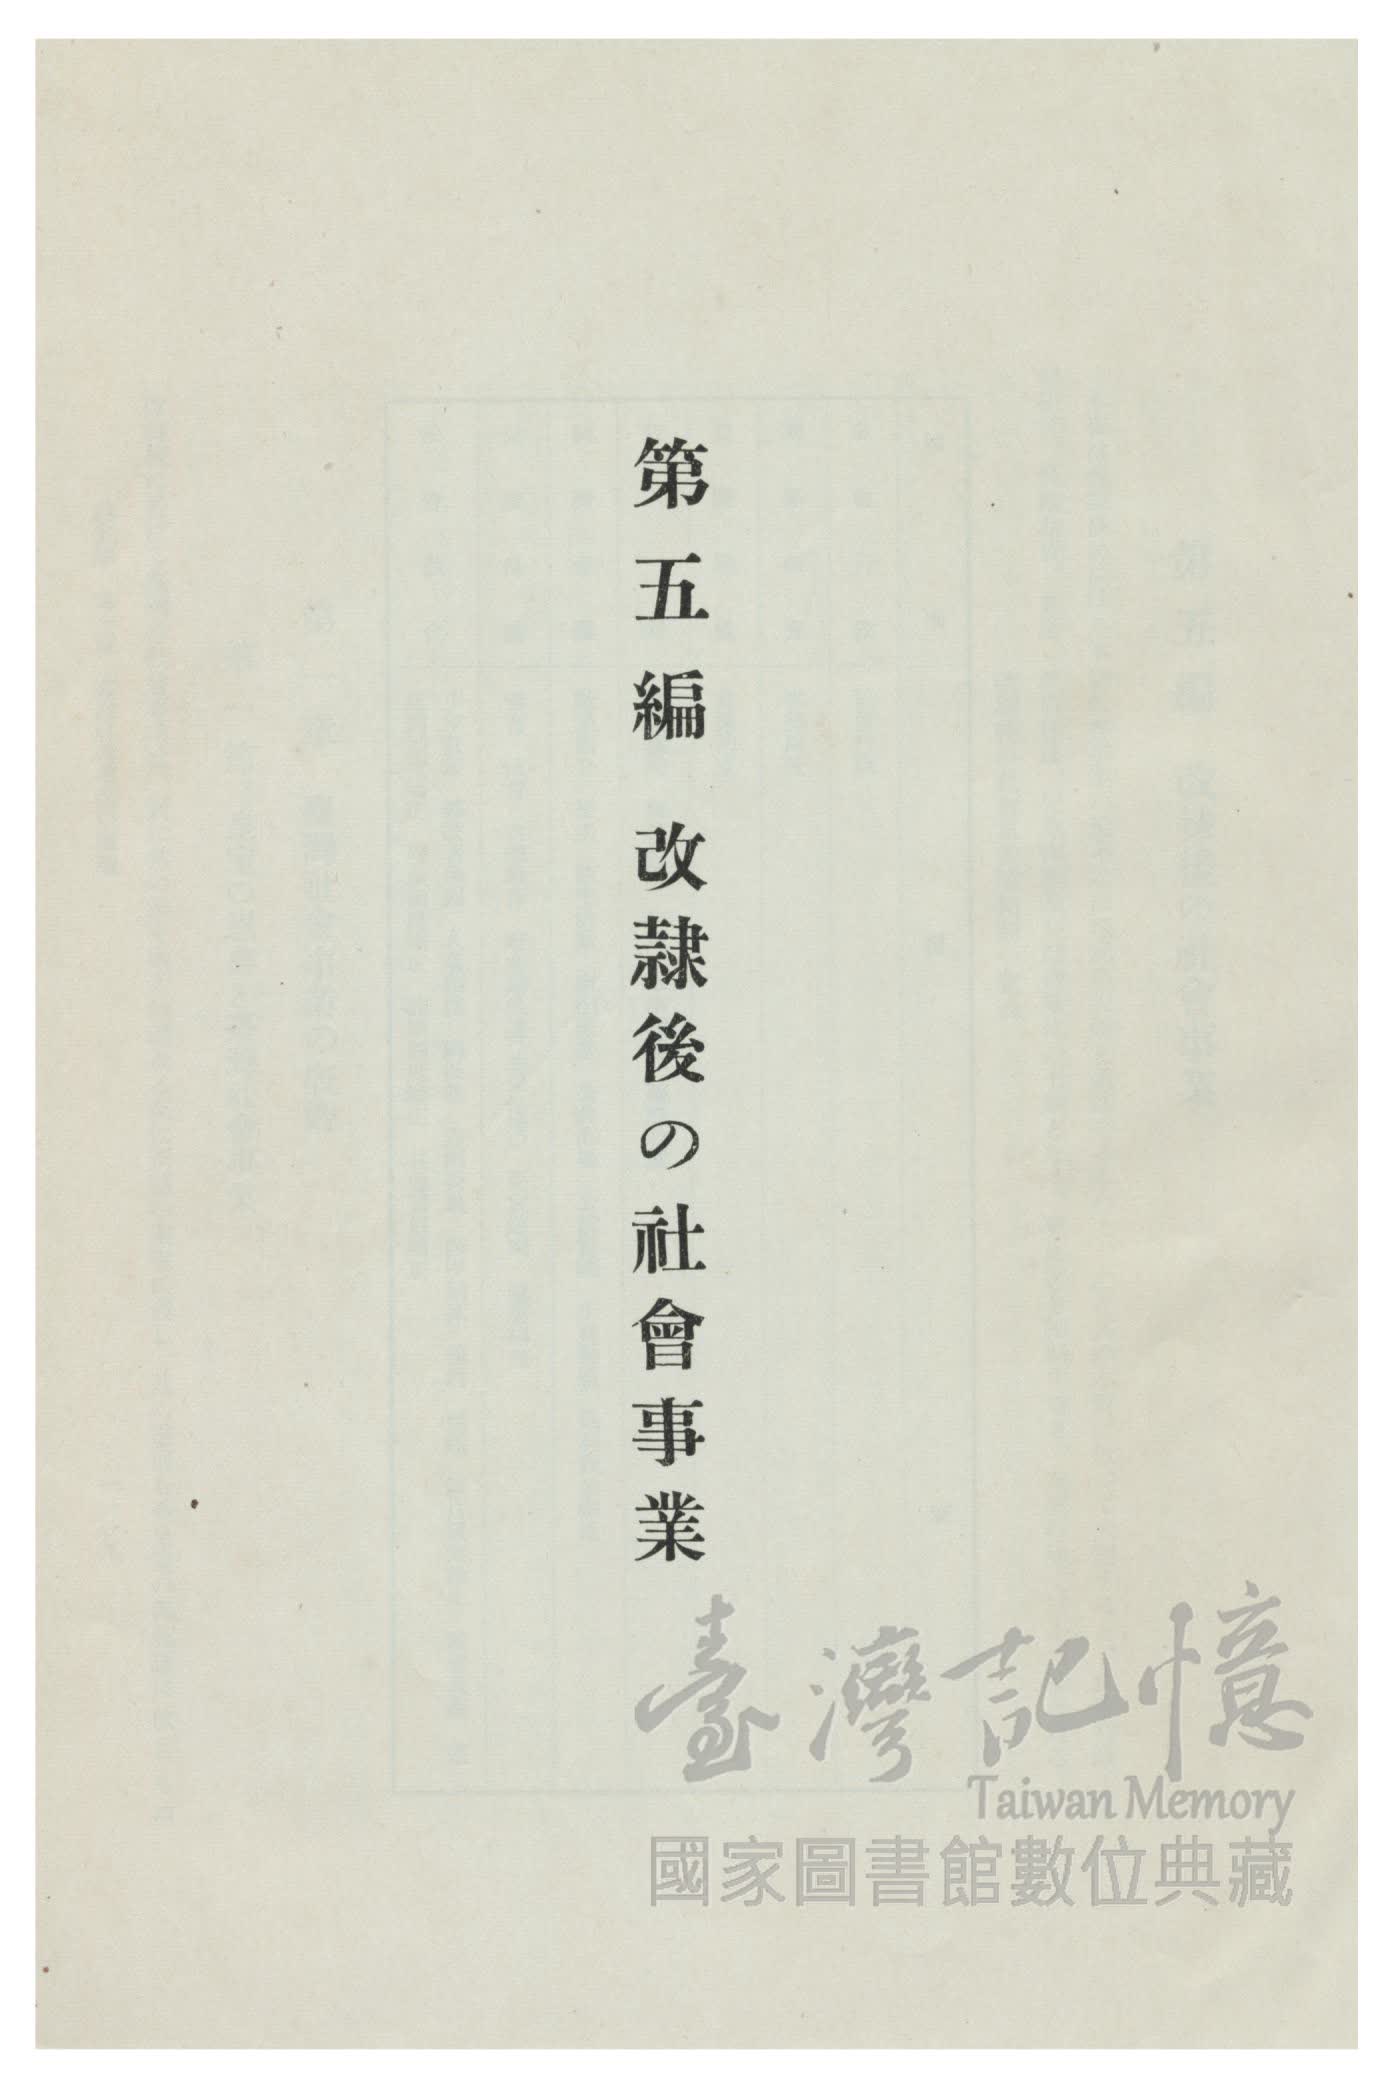 第五編 改隷後の社會事業
臺灣記憶
Taiwan Memory
國家圖書館數位典藏